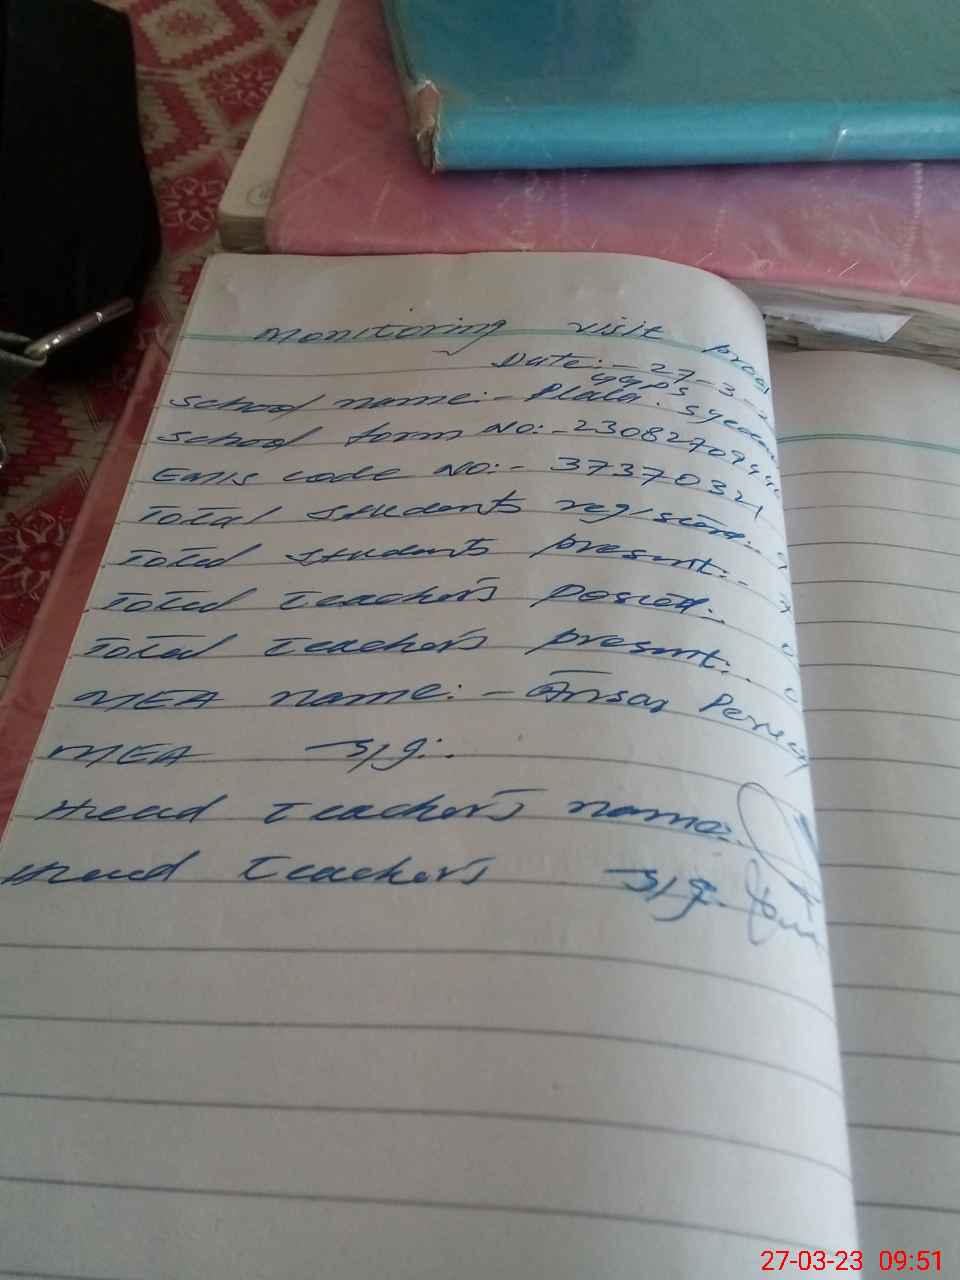 Monitoring visit proof
Date:- 27-3-2
GGPS
School name:- Plala Syeda
School form No:- 2308270944
Emis code No:- 37370321
Total students register:
Total students present:-
Total teachers posted:
Total teachers present:
MEA name:- Ansar Perv
MEA sig:
Head teacher's name:
Head teacher's sig:
27-03-23 09:51